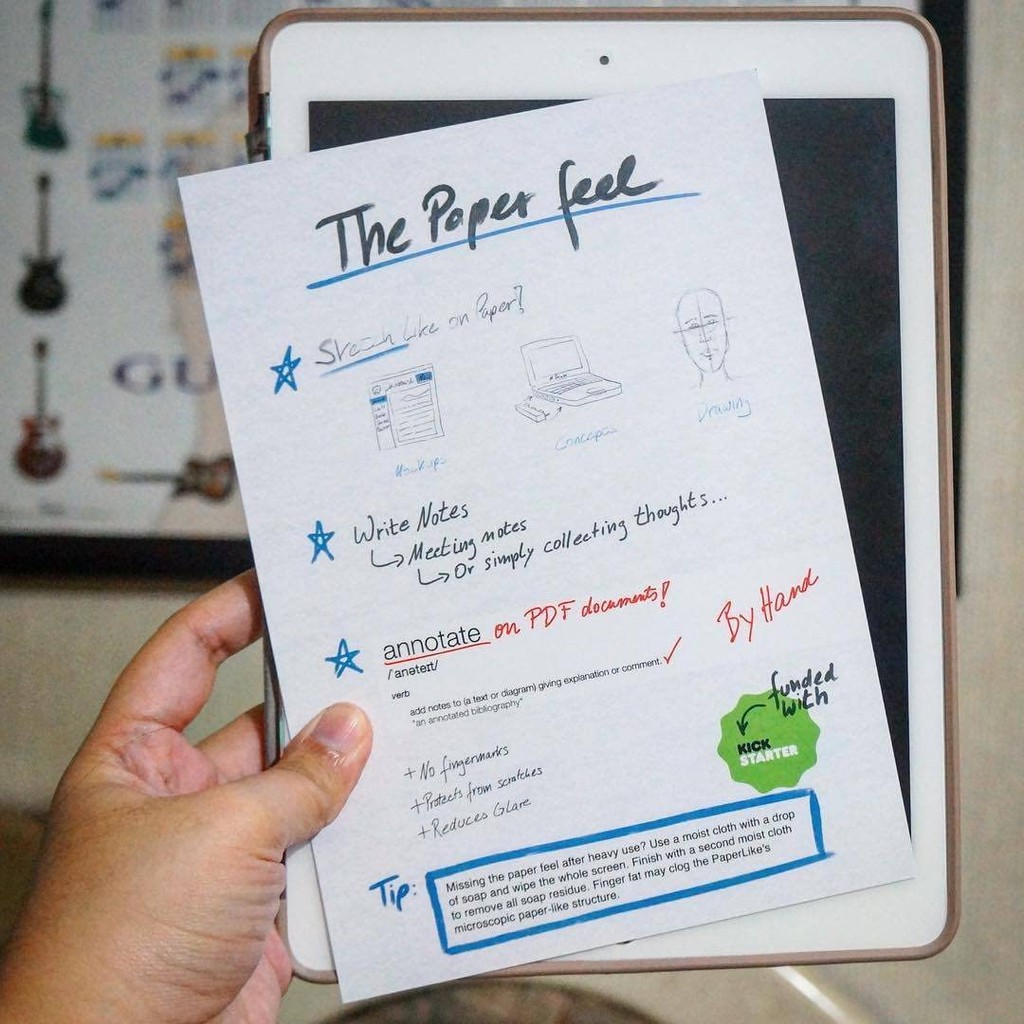 GU
The Paper feel
Sketch Like on Paper?
Mockups
Concepts
Drawing
Write Notes
Meeting notes
Or simply collecting thoughts...
annotate on PDF documents!
/'anəteɪt/
verb
add notes to (a text or diagram) giving explanation or comment.
"an annotated bibliography"
By Hand
funded
with
KICK
STARTER
+ No fingermarks
+ Protects from scratches
+ Reduces Glare
Tip:
Missing the paper feel after heavy use? Use a moist cloth with a drop
of soap and wipe the whole screen. Finish with a second moist cloth
to remove all soap residue. Finger fat may clog the PaperLike's
microscopic paper-like structure.